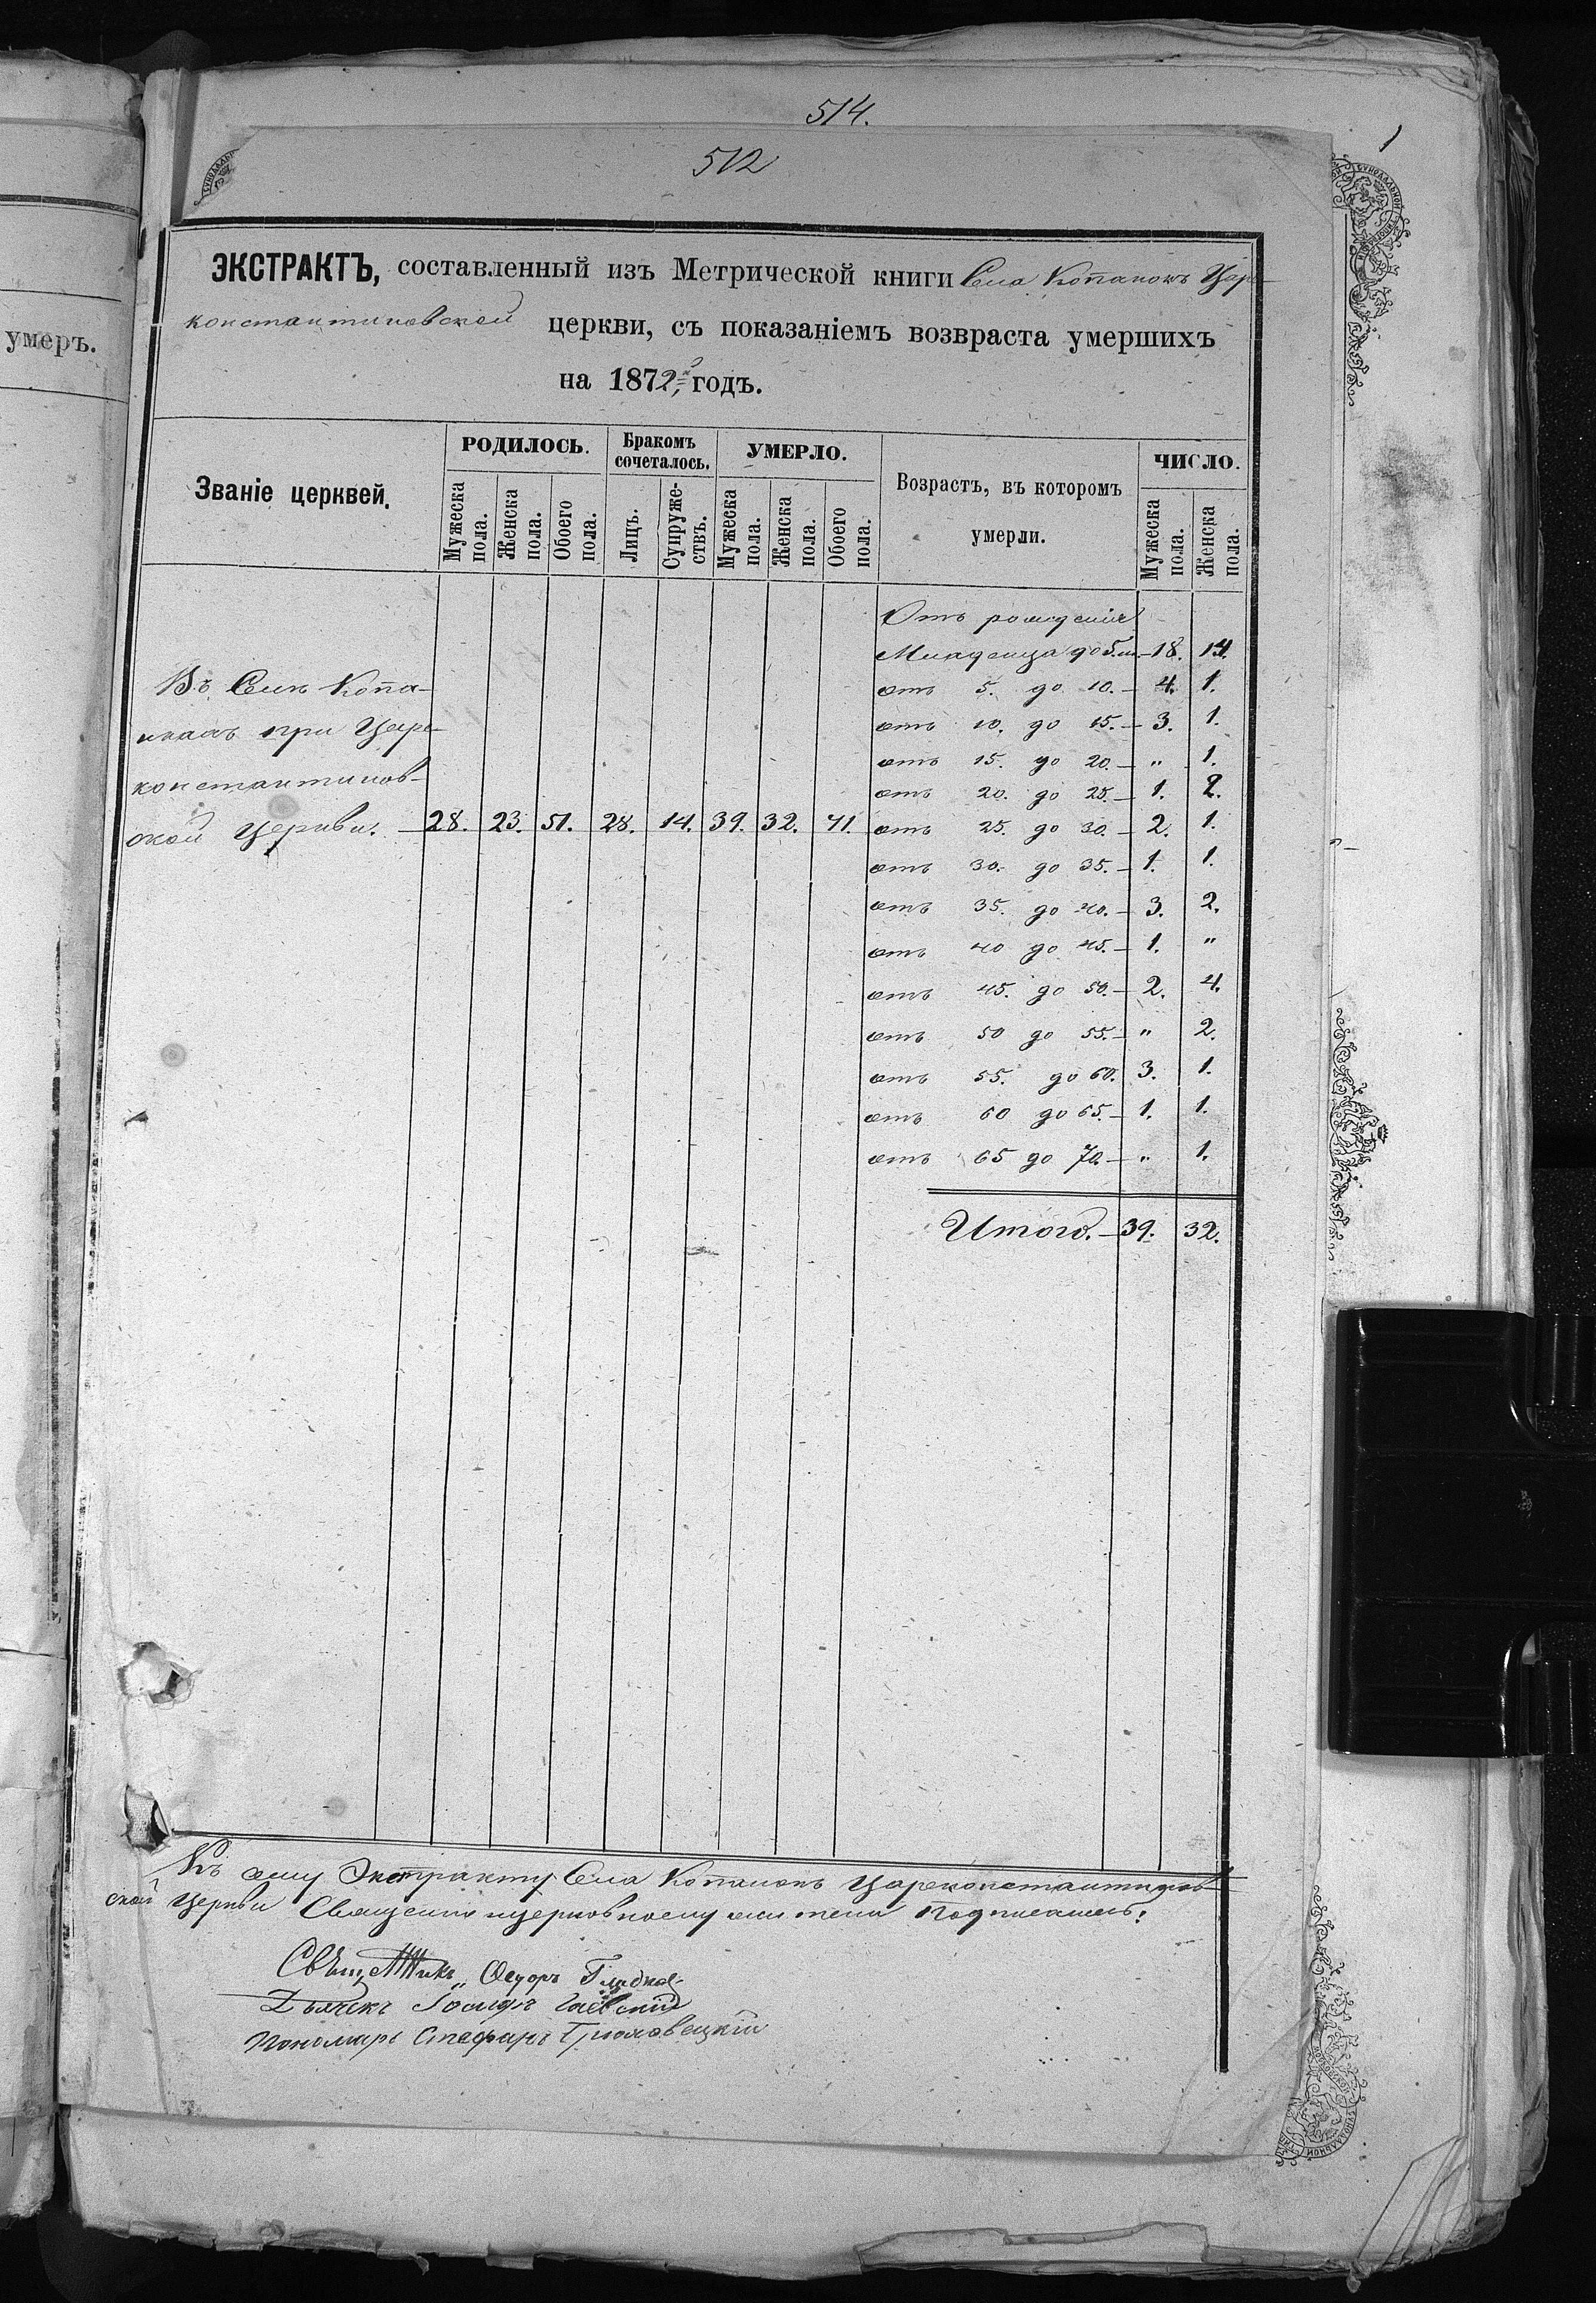 514.
1
512
умеръ.
ЭКСТРАКТЪ, составленный изъ Метрической книги Села Копанокъ Царе-
константиновской церкви, съ показаніемъ возвраста умершихъ
на 1872й годъ.
Званіе церквей.
РОДИЛОСЬ.
Бракомъ сочеталось.
УМЕРЛО.
Возрастъ, въ которомъ умерли.
ЧИСЛО.
Мужеска пола.
Женска пола.
Обоего пола.
Лицъ.
Супружествъ.
Мужеска пола.
Женска пола.
Обоего пола.
Мужеска пола.
Женска пола.
Отъ рожденія
Младенца до 5.ти – 18. 14.
отъ 5. до 10. – 4. 1.
отъ 10. до 15. – 3. 1.
отъ 15. до 20. – „ 1.
отъ 20. до 25. – 1. 2.
отъ 25. до 30. – 2. 1.
отъ 30. до 35. – 1. 1.
отъ 35. до 40. – 3. 2.
отъ 40 до 45. – 1. „
отъ 45. до 50. – 2. 4.
отъ 50 до 55. – „ 2.
отъ 55. до 60. 3. 1.
отъ 60 до 65. – 1. 1.
отъ 65 до 70. – „ 1.
Итого. – 39. 32.
Въ Селѣ Копа-
нкахъ при Царе-
константинов-
ской Церкви. – 28. 23. 51. 28. 14. 39. 32. 71.
Къ сему Экстракту Села Копанокъ Царекон­стантинов-
ской Церкви Священно церковнослужители подписались:
Ѳедоръ
Дьячекъ Іосифъ Гаевскій
Пономарь Стефанъ